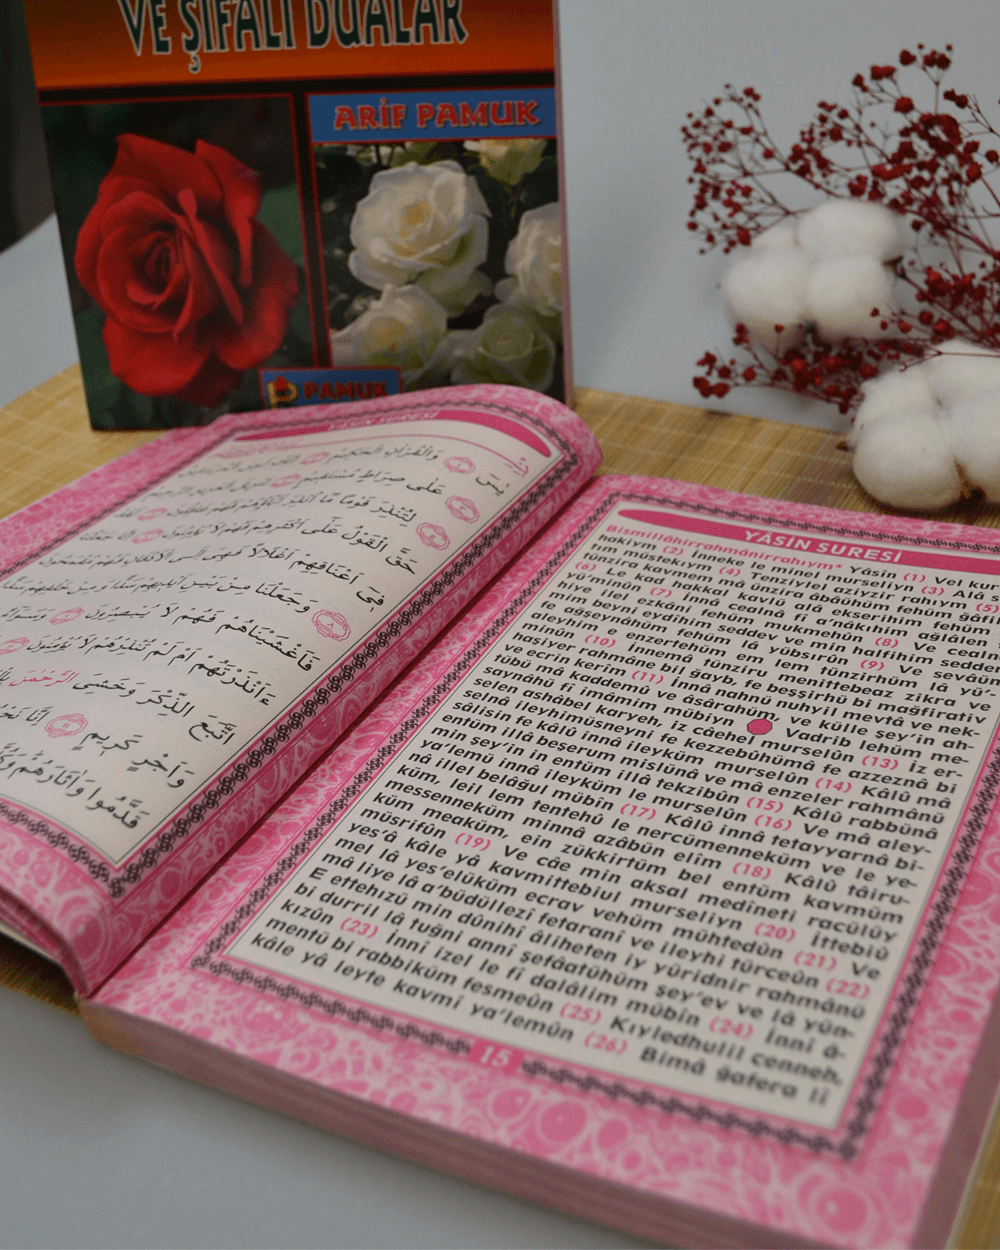 VE ŞİFALI DUALAR
ARİF PAMUK
PAMUK
YASİN SURESİ
يٰسٓ وَالْقُرْاٰنِ الْحَك۪يمِ
عَلٰى صِرَاطٍ مُسْتَق۪يمٍ
لِتُنْذِرَ قَوْمًا مَٓا اُنْذِرَ اٰبَٓاؤُ۬هُمْ فَهُمْ غَافِلُونَ لَقَدْ
حَقَّ الْقَوْلُ عَلٰٓى اَكْثَرِهِمْ فَهُمْ لَا يُؤْمِنُونَ اِنَّا جَعَلْنَا
ف۪ٓي اَعْنَاقِهِمْ اَغْلَالًا فَهِيَ اِلَى الْاَذْقَانِ فَهُمْ مُقْمَحُونَ
وَجَعَلْنَا مِنْ بَيْنِ اَيْد۪يهِمْ سَدًّا وَمِنْ خَلْفِهِمْ سَدًّا
فَاَغْشَيْنَاهُمْ فَهُمْ لَا يُبْصِرُونَ وَسَوَٓاءٌ
ءَاَنْذَرْتَهُمْ اَمْ لَمْ تُنْذِرْهُمْ لَا يُؤْمِنُونَ
اتَّبَعَ الذِّكْرَ وَخَشِيَ الرَّحْمٰنَ
وَاَجْرٍ كَر۪يمٍ اِنَّا نَحْنُ
قَدَّمُوا وَاٰثَارَهُمْ
YÂSİN SURESİ
Bismillâhirrahmânirrahıym* Yâsîn (1) Vel kur
hakîym (2) İnneke le minel murseliyn (3) Alâ s
tım müstekıym (4) Tenziylel aziyzir rahıym (5)
tünzira kavmem mâ ünzira âbâühüm fehüm ğâfil
(6) Le kad hakkal kavlü alâ ekserihim fehüm lâ
yü'minûn (7) İnnâ cealnâ fî a'nâkıhim ağlâlen
hiye ilel ezkâni fehüm mukmehûn (8) Ve cealn
min beyni eydîhim seddev ve min halfihim sedden
fe ağşeynâhüm fehüm lâ yübsırûn (9) Ve sevâün
aleyhim e enzertehüm em lem tünzirhüm lâ yü'-
minûn (10) İnnemâ tünziru menittebeaz zikra ve
haşiyer rahmâne bil ğayb, fe beşşirhü bi mağfirativ
ve ecrin kerîm (11) İnnâ nahnü nuhyil mevtâ ve nek-
tübü mâ kaddemû ve âsârahüm, ve külle şey'in ah-
saynâhü fî imâmim mübiyn Vadrib lehüm me-
selen ashâbel karyeh, iz câehel murselûn (13) İz er-
selnâ ileyhimüsneyni fe kezzebûhümâ fe azzeznâ bi
sâlisin fe kâlû innâ ileyküm murselûn (14) Kâlû mâ
entüm illâ beşerum mislünâ ve mâ enzeler rahmânü
min şey'in in entüm illâ tekzibûn (15) Kâlû rabbünâ
ya'lemü innâ ileyküm le murselûn (16) Ve mâ aley-
nâ illel belâğul mübîn (17) Kâlû innâ tetayyarnâ bi-
küm, leil lem tentehû le nercümenneküm ve le ye-
messenneküm minnâ azâbün elîm (18) Kâlû tâiru-
küm meaküm, ein zükkirtüm bel entüm kavmüm
müsrifûn (19) Ve câe min aksal medîneti racülüy
yes'â kâle yâ kavmittebiul murseliyn (20) İttebiû
mel lâ yes'elüküm ecrav vehüm mühtedûn (21) Ve
mâ liye lâ a'büdüllezî fetaranî ve ileyhi türceûn (22)
E ettehızü min dûnihî âliheten iy yüridnir rahmânü
bi durril lâ tuğni annî şefâatühüm şey'ev ve lâ yün-
kızûn (23) İnnî izel le fî dalâlim mübîn (24) İnnî â-
mentü bi rabbiküm fesmeûn (25) Kıyledhulil cenneh,
kâle yâ leyte kavmî ya'lemûn (26) Bimâ ğafera lî
15